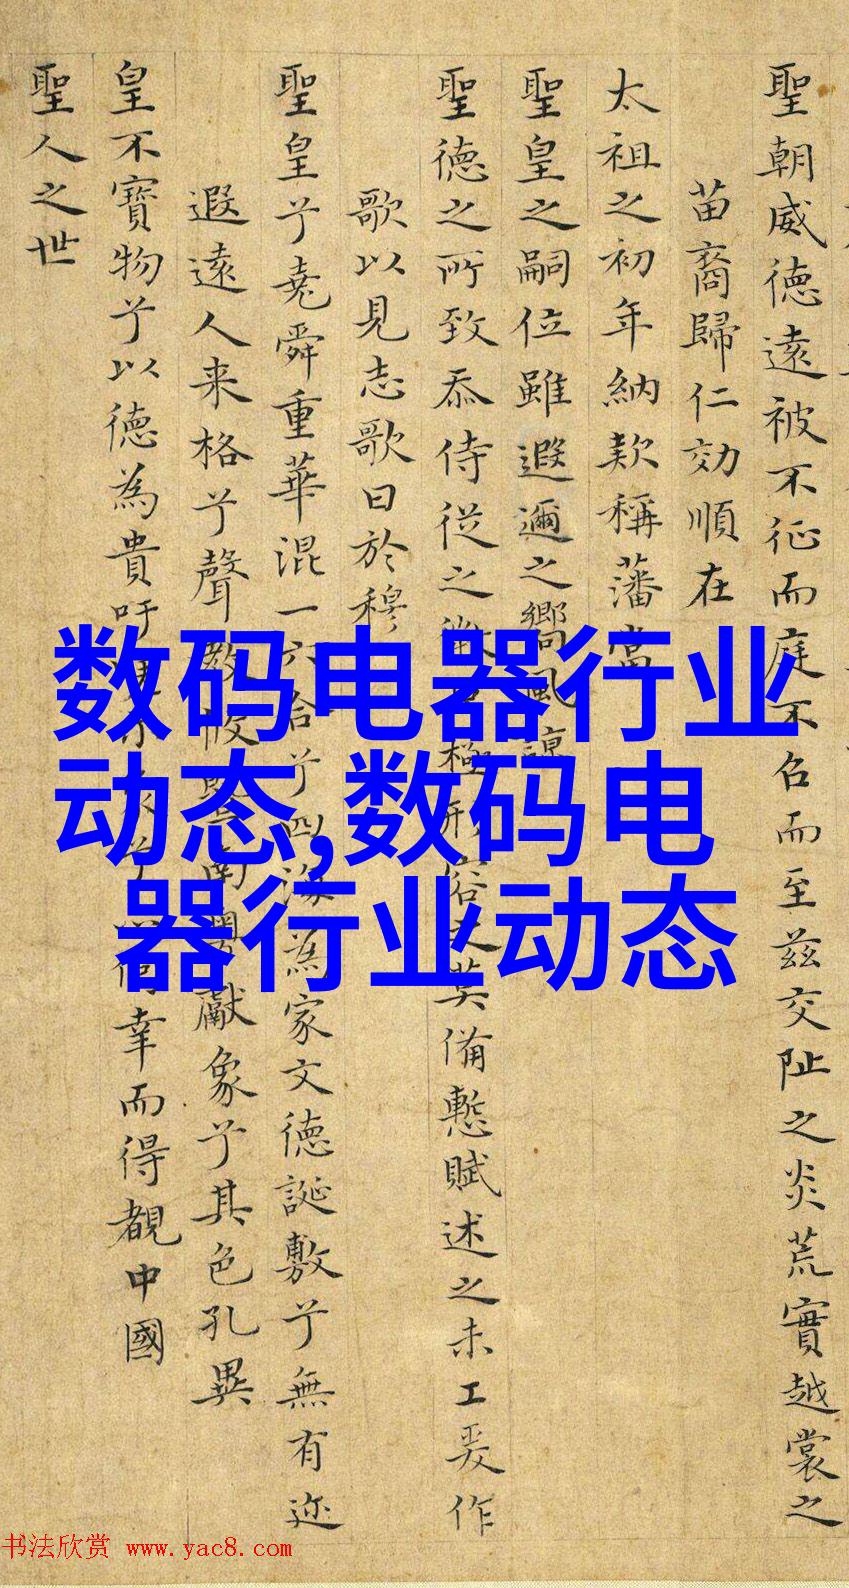 聖朝威德遠被不征而庭不召而至茲交阯之炎荒實越裳之
苗裔歸仁効順在
太祖之初年納款稱藩當
聖皇之嗣位雖遐邇之嚮風
聖德之所致忝侍從之極形容之莫備慙賦述之未工爰作
歌以見志歌曰於穆
聖皇兮堯舜重華混一六合兮四海為家文德誕敷兮無有迩
遐遠人来格兮聲教被獻象兮其色孔異
皇不寶物兮以德為貴吁幸而得覩中國
聖人之世
数码电器行业
动态,数码电
器行业动态
书法欣赏 www.yac8.com